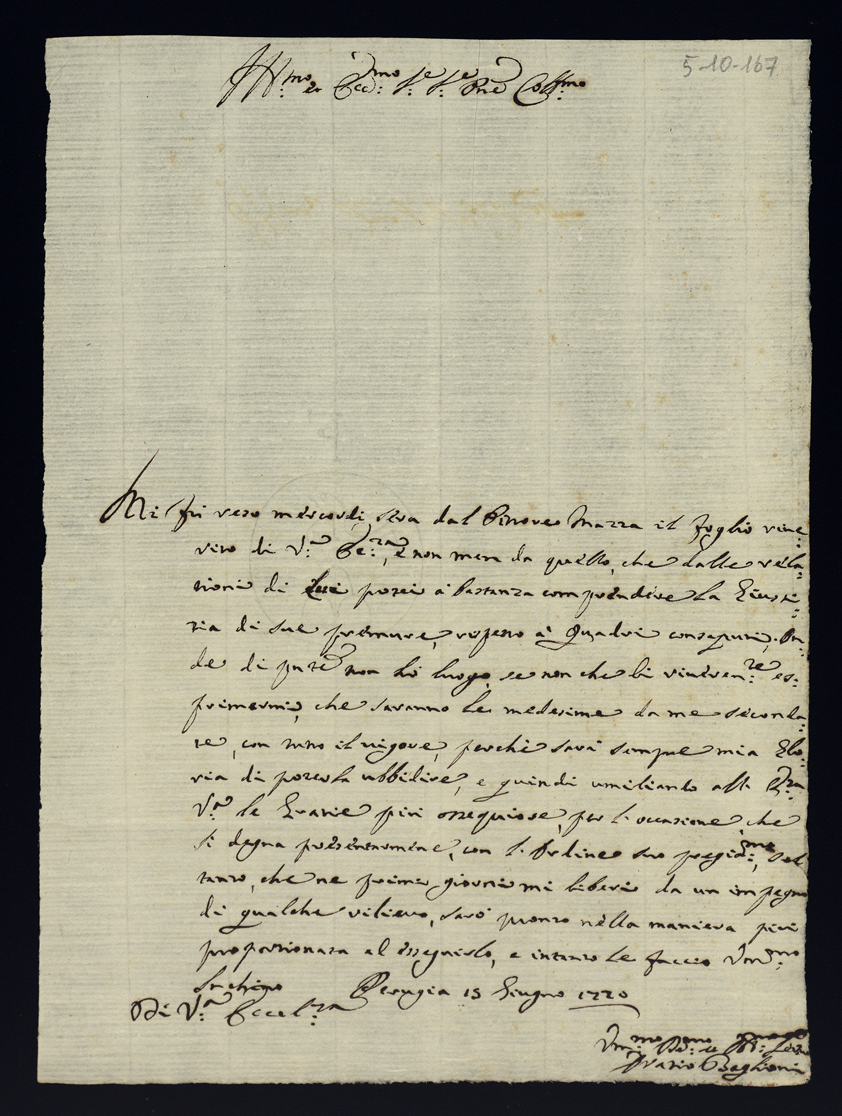 5-10-167
Ill:mo et Ecc:mo Sig:e Sig:e Pne Col:mo
Mi fu reso mercordì sera dal Pittore Mazza il foglio rive:
rito di V:a Ecc:za, e non men da quello, che dalle rela:
tioni di Lui potei a bastanza comprendere la Giusti:
tia di sue premure, rispetto a' Quadri consaputi, On:
de di p:nte non hò luogo, se non che di riveren:te es:
primermi, che saranno le medesime da me seconda:
te, con tutto il rigore, perche sarà sempre mia Glo:
ria di poterla ubbidire, e quindi umiliando all' E:za
V:a le Gratie più ossequiose, per l'occasione, che
si degna porgermene, con l'Ordine suo pregia:mo, Sol
tanto, che ne primi giorni mi liberi da un impegno
di qualche rilievo, sarò pronto nella maniera più
proportionata al esseguirlo, e intanto le faccio Um:mo
Inchino Perugia 15 Giugno 1720
Di V:a Eccel:za
Um:mo Dev:mo et
Oratio Baglioni